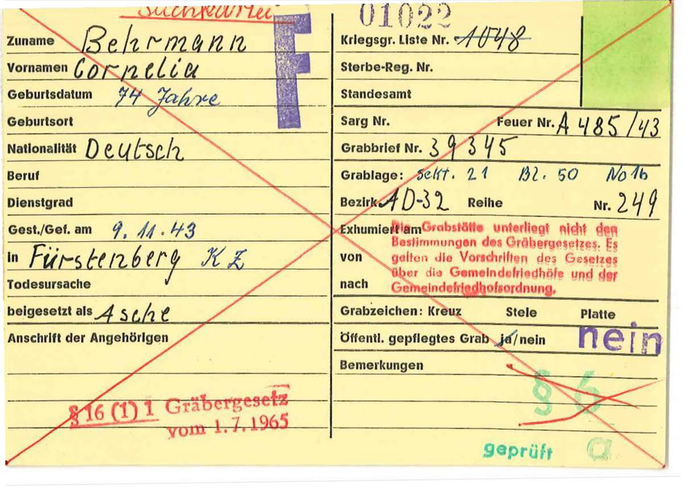 Suchkartei
Zuname Behrmann
Vornamen Cornelia
Geburtsdatum 74 Jahre
Geburtsort
Nationalität Deutsch
Beruf
Dienstgrad
Gest./Gef. am 9.11.43
in Fürstenberg KZ
Todesursache
beigesetzt als Asche
Anschrift der Angehörigen
§ 16 (1) 1 Gräbergesetz
vom 1.7.1965
F
01022
Kriegsgr. Liste Nr. 1048
Sterbe-Reg. Nr.
Standesamt
Sarg Nr. Feuer Nr. A 485/43
Grabbrief Nr. 39345
Grablage: Sekt. 21 Bl. 50 No 16
Bezirk AD-32 Reihe Nr. 249
Exhumiert am
von
nach
Die Grabstätte unterliegt nicht den
Bestimmungen des Gräbergesetzes. Es
gelten die Vorschriften des Gesetzes
über die Gemeindefriedhöfe und der
Gemeindefriedhofsordnung.
Grabzeichen: Kreuz Stele Platte
Öffentl. gepflegtes Grab ja/nein nein
Bemerkungen
§ 6
geprüft a